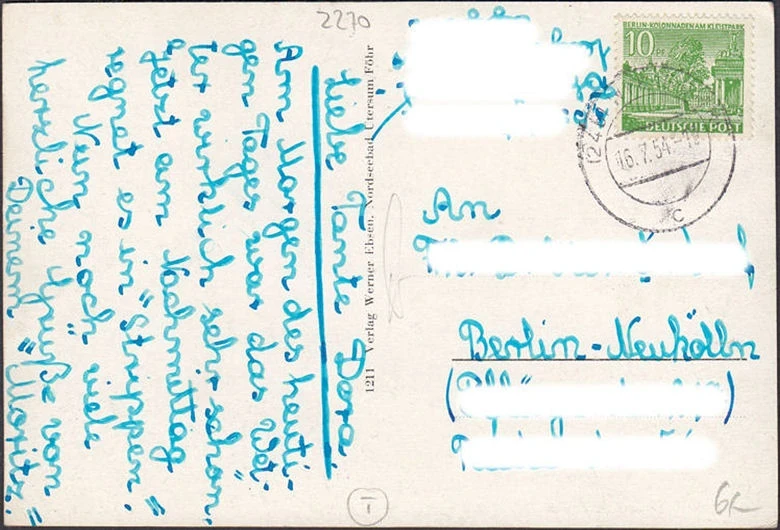 2270
Liebe Tante Dora
Am Morgen des heuti-
gen Tages war das Wet-
ter wirklich sehr schön.
Jetzt am Nachmittag
regnet es in "Strippen."
Nun noch viele
herzliche Grüße von
Deinem "Moritz."
1211 Verlag Werner Ebsen, Nordseebad Utersum Föhr
BERLIN-KOLONNADEN AM KLEISTPARK
10
DEUTSCHE POST
16.7.54
c
An
Berlin-Neukölln
I